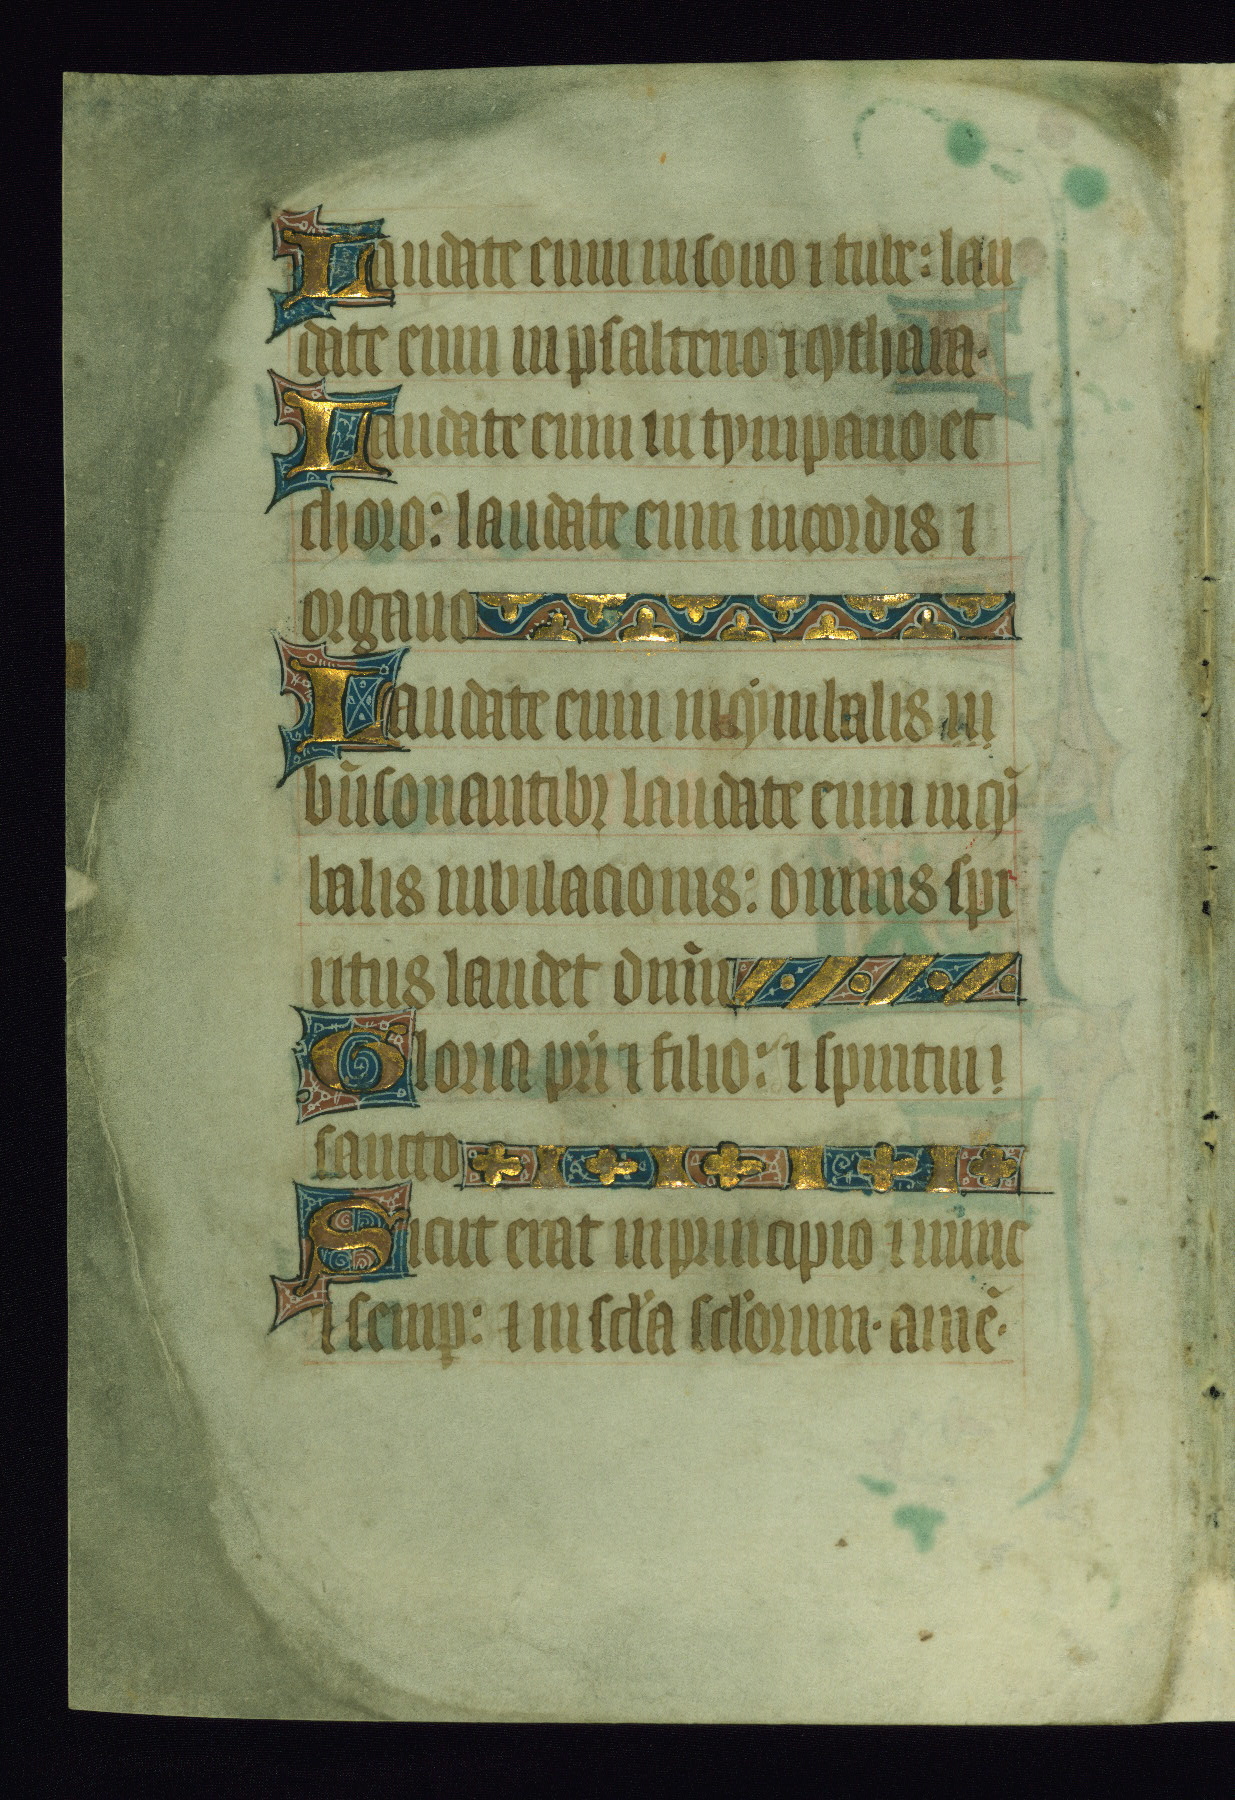 Laudate eum in sono ⁊ tube: lau
date eum in psalterio ⁊ cythara.
Laudate eum in tympano et
choro: laudate eum in cordis ⁊
organo
Laudate eum in cymbalis iu
bn̄sonantibꝰ laudate eum in cȳ
balis iubilacionis: omnis spi
ritus laudet dn̄m
Gloria pr̄i ⁊ filio: ⁊ spiritui
sancto
Sicut erat in principio ⁊ nunc
⁊ semꝑ: ⁊ in scl̄a scl̄orum. amē.